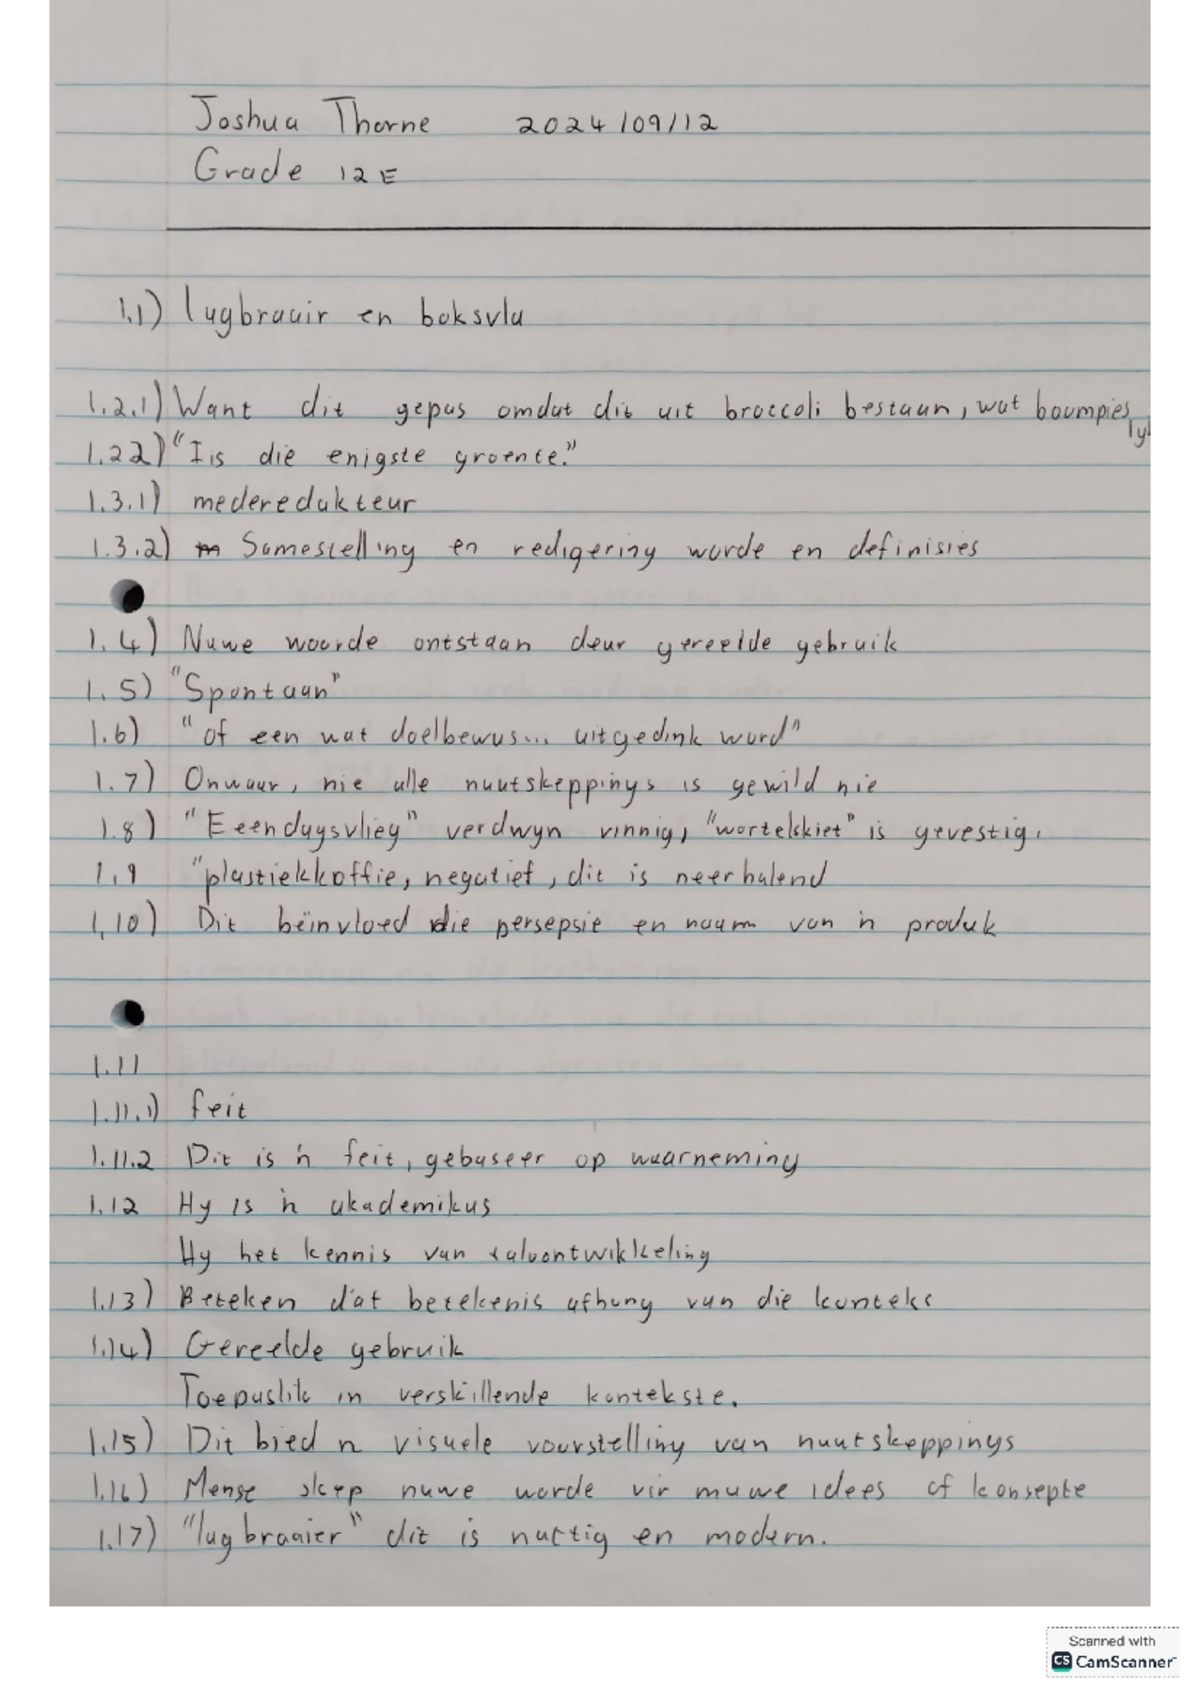 Joshua Thorne 2024/09/12
Grade 12E
1.1) lugbraair en boksvla
1.2.1) Want dit gepas omdat dit uit broccoli bestaan, wat boompies ly
1.22) "Iis die enigste groente."
1.3.1) mederedakteur
1.3.2) Samestelling en redigering warde en definisies
1.4) Nuwe woorde ontstaan deur gereelde gebruik
1.5) "Spontaan"
1.6) "of een wat doelbewus... uitgedink word"
1.7) Onwaar, nie alle nuutskeppings is gewild nie
1.8) "Eeendagsvlieg" verdwyn vinnig, "wortelskiet" is gevestig.
1.9 "plastiekkoffie, negatief, dit is neerhalend
1.10) Dit beïnvloed die persepsie en naam van 'n produk
1.11
1.11.1) feit
1.11.2 Dit is 'n feit, gebaseer op waarneming
1.12 Hy is 'n akademikus
Hy het kennis van taalontwikkeling
1.13) Beteken dat betekenis afhang van die konteks
1.14) Gereelde gebruik
Toepaslik in verskillende kontekste.
1.15) Dit bied n visuele voorstelling van nuutskeppings
1.16) Mense skep nuwe worde vir nuwe idees of konsepte
1.17) "lugbraaier" dit is nuttig en modern.
Scanned with
CS CamScanner